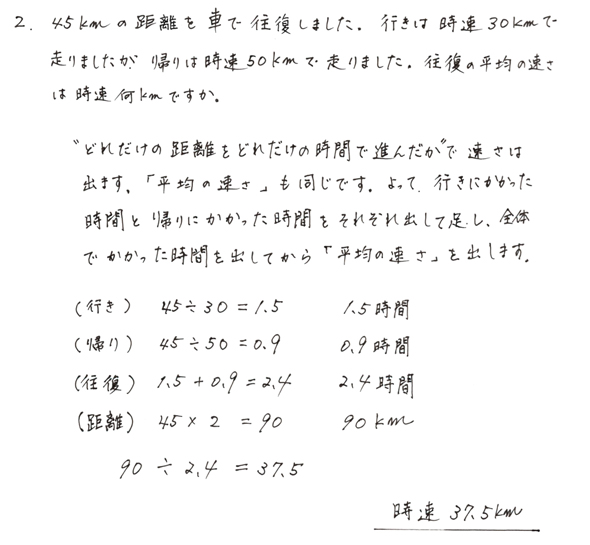 2. 45kmの距離を車で往復しました。行きは時速30kmで
走りましたが、帰りは時速50kmで走りました。往復の平均の速さ
は時速何kmですか。
"どれだけの距離をどれだけの時間で進んだか"で速さは
出ます。「平均の速さ」も同じです。よって、行きにかかった
時間と帰りにかかった時間をそれぞれ出して足し、全体
でかかった時間を出してから「平均の速さ」を出します。
(行き) 45÷30=1.5 1.5時間
(帰り) 45÷50=0.9 0.9時間
(往復) 1.5+0.9=2.4 2.4時間
(距離) 45×2 =90 90km
90÷2.4=37.5
時速 37.5km